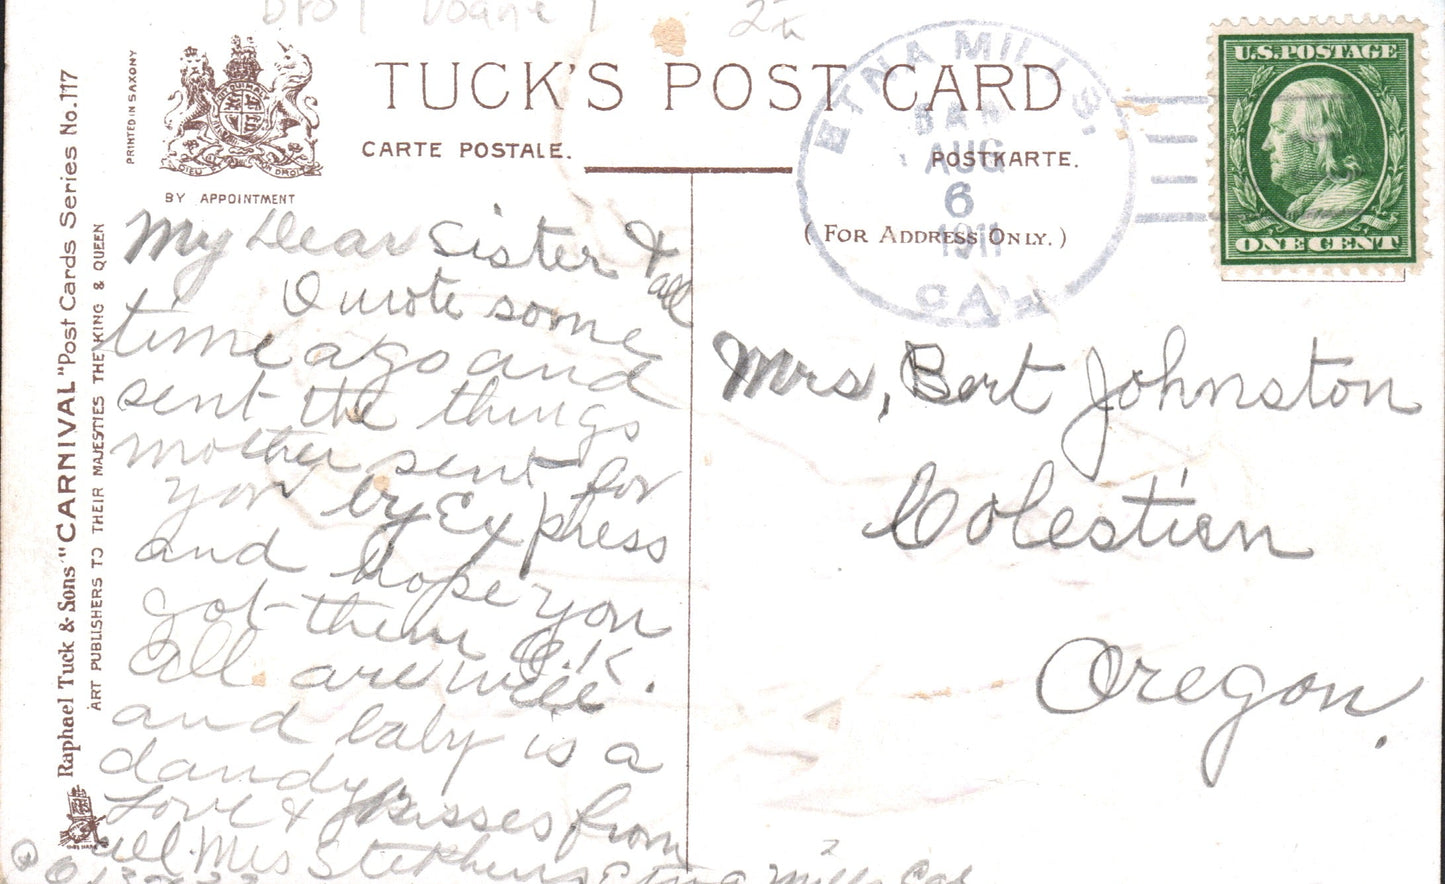 DPO / Doane 1
2
TUCK'S POST CARD
CARTE POSTALE.
POSTKARTE.
(FOR ADDRESS ONLY.)
PRINTED IN SAXONY
DIEU ET MON DROIT
BY APPOINTMENT
Raphael Tuck & Sons' "CARNIVAL" Post Cards Series No. 117
ART PUBLISHERS TO THEIR MAJESTIES THE KING & QUEEN
ETNA MILLS,
8 AM
AUG
6
1911
CAL.
U.S. POSTAGE
ONE CENT
My Dear Sister &
all
I wrote some
time ago and
sent the things
mother sent for
you by Express
and hope you
got them O.K.
all are well.
and baby is a
dandy
Love & Kisses from
all. Mrs Stephens Etna Mills Cal
Mrs, Bert Johnston
Colestien
Oregon.